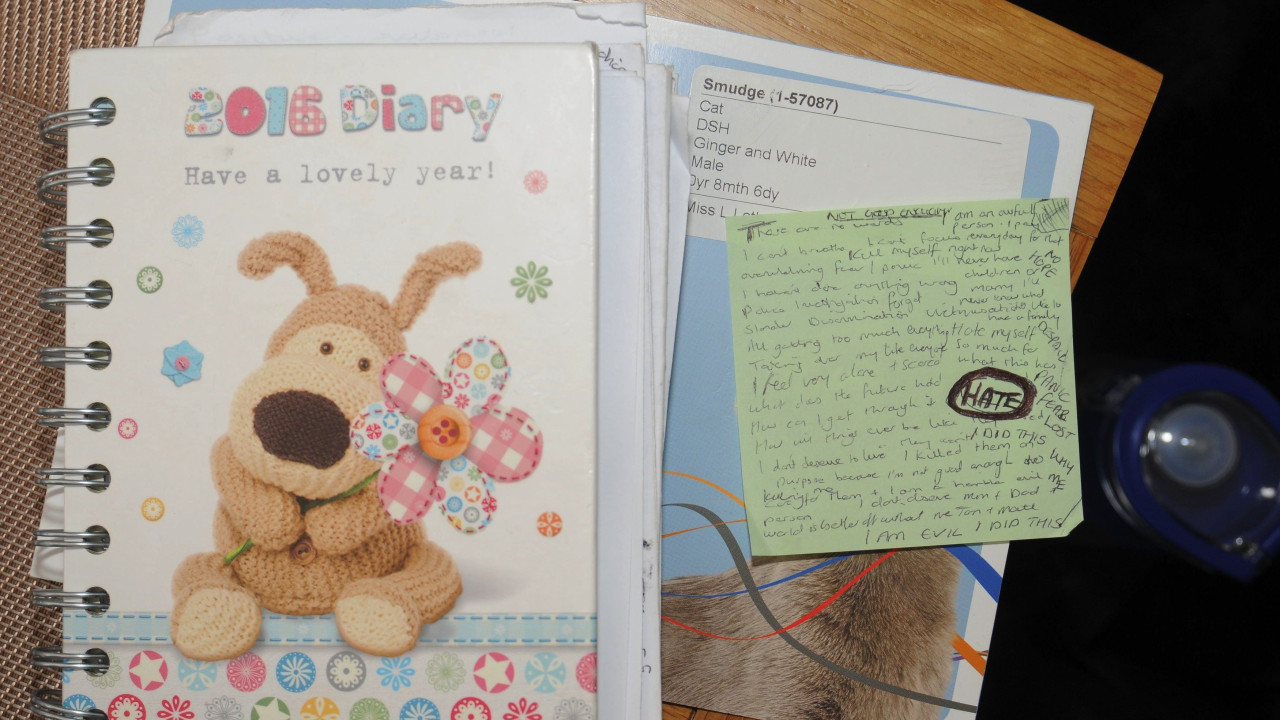 2016 Diary
Have a lovely year!
Smudge (1-57087)
Cat
DSH
Ginger and White
Male
0yr 8mth 6dy
Miss L
There are no words NOT GOOD ENOUGH am an awful
person
I cant breathe I cant focus everyday for that
Kill myself right now
overwhelming fear / panic I'll never have HOPE
I haven't done anything wrong children or
Police investigation forgot never know what
Slander Discrimination Victimisation
have a family
All getting too much everything Hate myself DESPAIR
Taking over my life so much for
I feel very alone + scared what this has
what does the future hold HATE PANIC
How can I get through it FEAR
LOST
How will things ever be like
I DID THIS
I don't deserve to live I killed them on WHY
purpose because I'm not good enough ME
them + I am a horrible evil
person I dont deserve Mum + Dad
world is better off without me
I AM EVIL I DID THIS